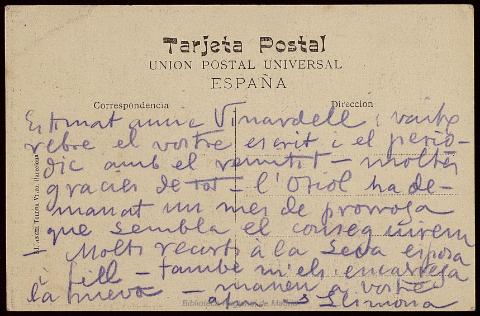 Tarjeta Postal
UNION POSTAL UNIVERSAL
ESPAÑA
Correspondencia
Direccion
Estimat amic Vinardell: vaitx
rebre el vostre escrit i el perio-
dic amb el remitit – moltes
gracies de tot – l'Oriol ha de-
manat un mes de prorroga
que sembla el conseguirem
– Molts recorts à la Seva esposa
i fill – també m'els encarrega
la meva – maneu a vostre
Llimona
Biblioteca de Madrid